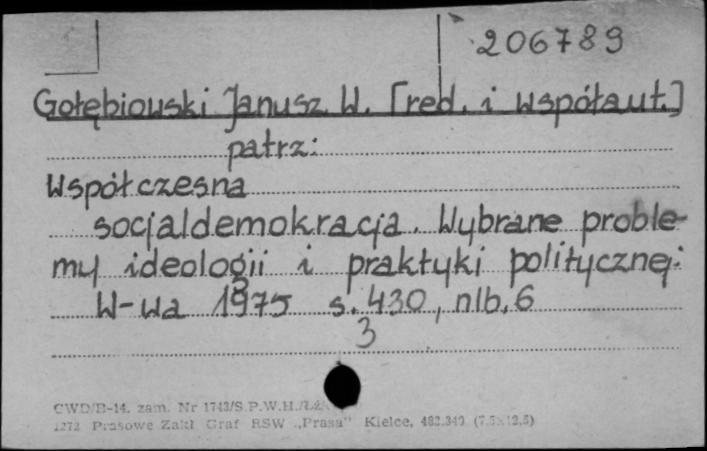 206789
Gołębiowski Janusz W. [red. i współaut.]
patrz:
Współczesna
socjaldemokracja. Wybrane proble-
my ideologii i praktyki politycznej.
W-wa 1975 s. 430, nlb. 6
3
CWD/B-14. zam. Nr 1743/S P.W.H.
1272 Prasowe Zakł Graf RSW „Prasa" Kielce, 482.340 (7.5×12,5)